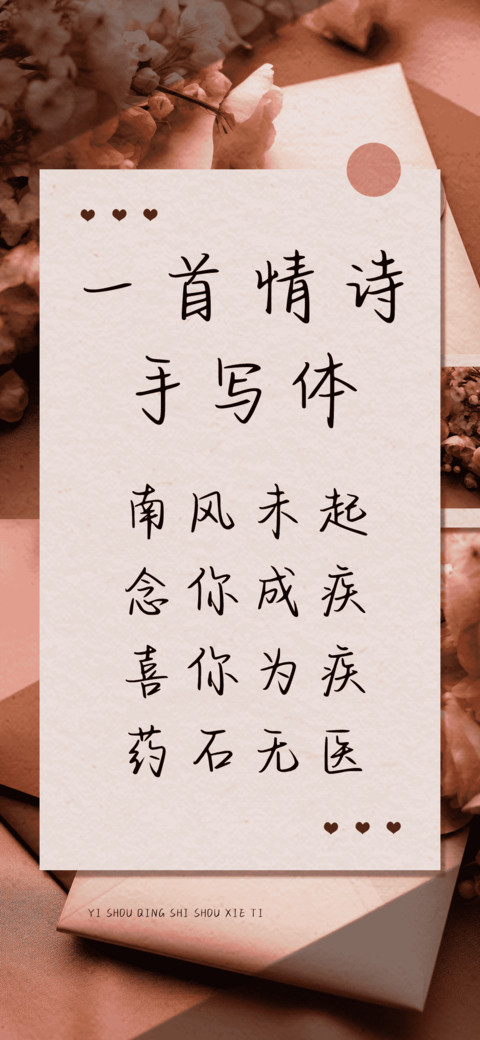 一首情诗
手写体
南风未起
念你成疾
喜你为疾
药石无医
YI SHOU QING SHI SHOU XIE TI